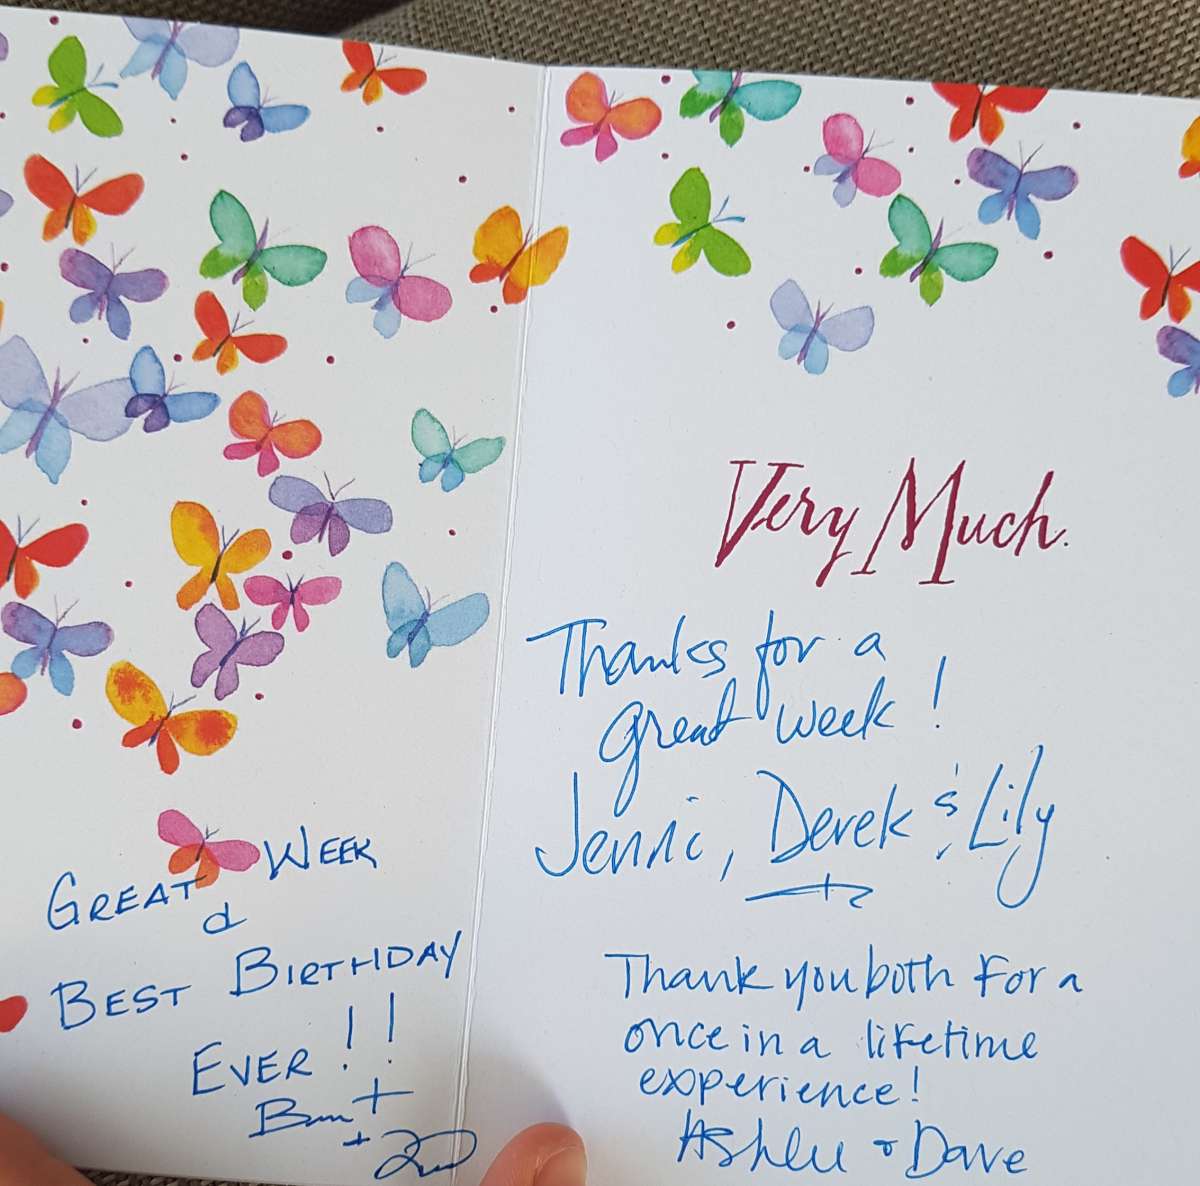 GREAT WEEK
&
BEST BIRTHDAY
EVER!!
+
Very Much.
Thanks for a
great week!
Jenni, Derek & Lily
Thank you both For a
once in a lifetime
experience!
+ Dave